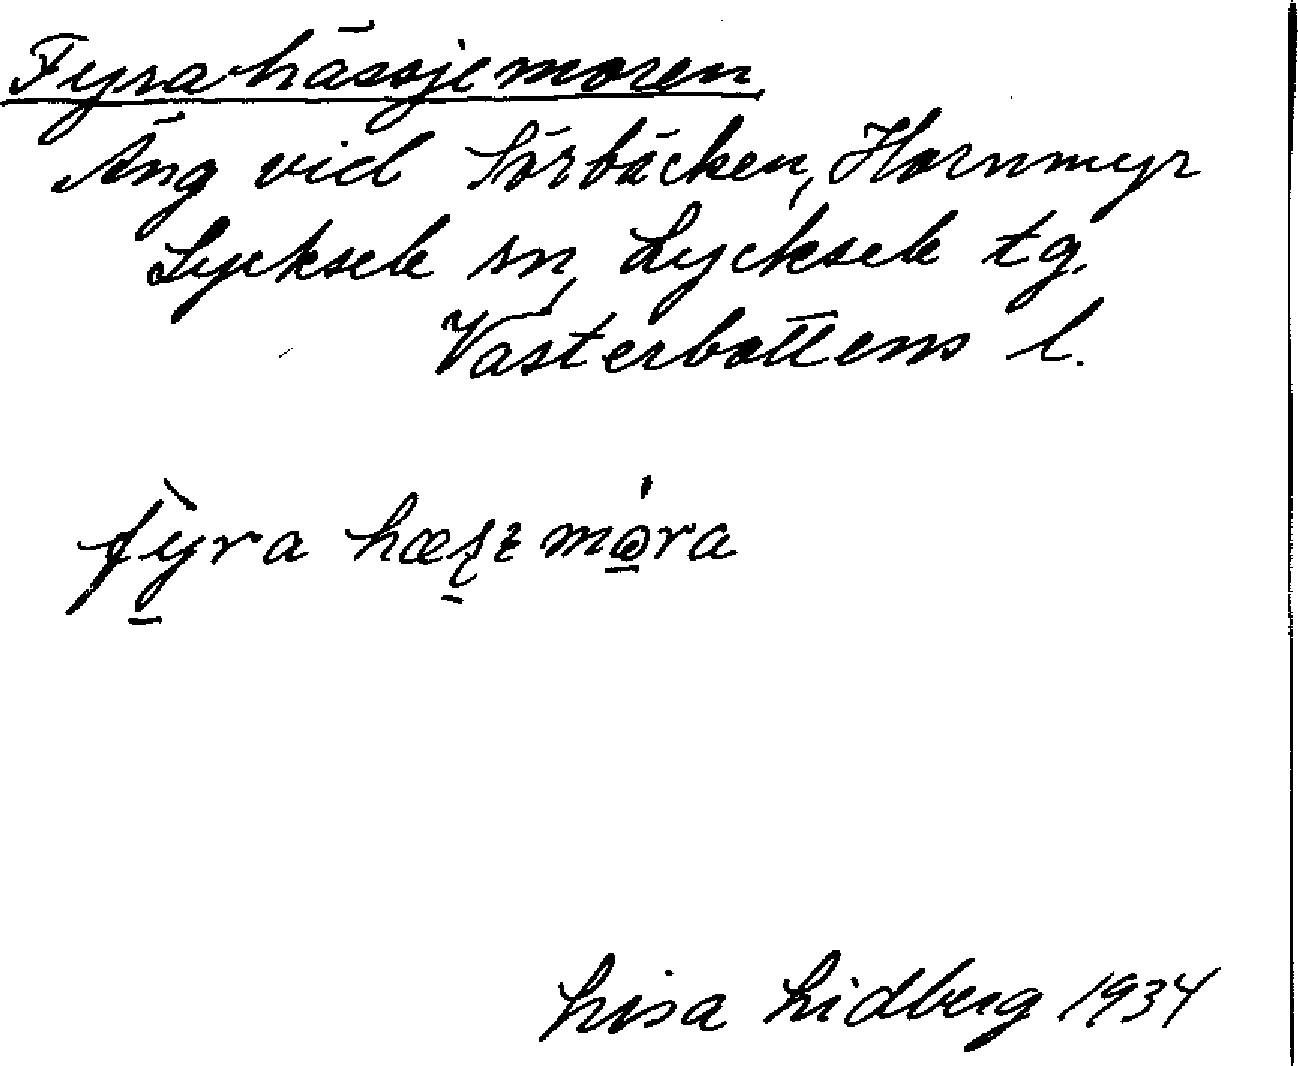 Fyrahässjemoren
Äng vid Sörbäcken, Hornmyr
Lycksele sn, Lycksele tg.
Västerbottens l.
fỳ̠ra
Lisa Lidberg 1934